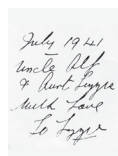 July 1941
Uncle Alf
& Aunt Lizzie
With Love